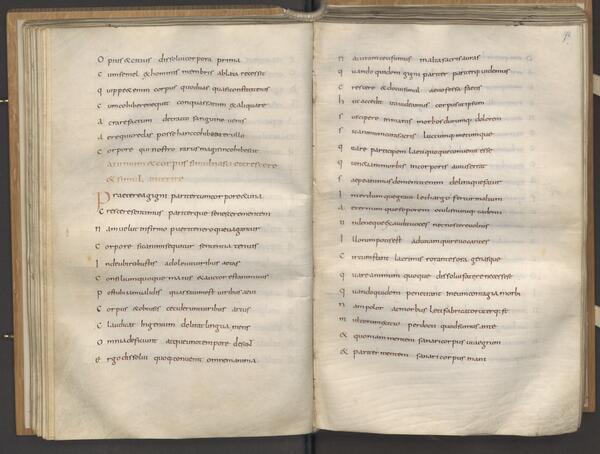 O cius & citius dissolui corpora prima
C um semel ex hominis membris ablata recessit
q uippe & enim corpus quod uas quasi constitit eius
C um cohibere nequit conquassatum ex aliqua re
a c rarefactum detracto sanguine uenis
a ere qui credas posse hanc cohiberier ullo
C orpore qui nostro rarus magis incohibessit
animum & corpus simul nasci & crescere
& simul interire
Praeterea gigni pariter cum corpore & una
C rescere sentimus pariterque senescere mentem
n am uelut infirmo pueri teneroque uagantur
C orpore sic animi sequitur sententia tenuis
I nde ubi robustis adoleuit uiribus aetas
C onsilium quoque maius & auctior est animi uis
P ost ubi iam ualidis quassatum est uiribus aeui
C orpus & obtusis ceciderunt uiribus artus
C laudicat ingenium delirat lingua mens
O mnia deficiunt atque uno tempore desunt
e rgo dissolui quoque conuenit omnem animai
n aturam ceu fumus in altas aeris auras
q uandoquidem gigni pariter pariterque uidemus
C rescere & docui simul aeuo fessa fatisci
h uc accedit uti uideamus corpus ut ipsum
s uscipere inmanis morbos durumque dolorem
s ic animum curas acris luctumque metumque
q uare participem leti quoque conuenit esse
q uin etiam morbis in corporis auius errat
s aepe animus dementit enim deliraque fatur
I nterdumque graui lethargo fertur in altum
a eternumque soporem oculis nutuque cadenti
u nde neque exaudit uoces nec noscere uoltus
I llorum potis est ad uitam qui reuocantes
C ircumstant lacrimis rorantes ora genasque
q uare animum quoque dissolui fateare necessest
q uandoquidem penetrant in eum contagia morbi
n am dolor ac morbus leti fabricator uterquest
m ultorum exitio perdocti quod sumus ante
& quoniam mentem sanari corpus ut aegrum
& pariter mentem sanari corpus inani